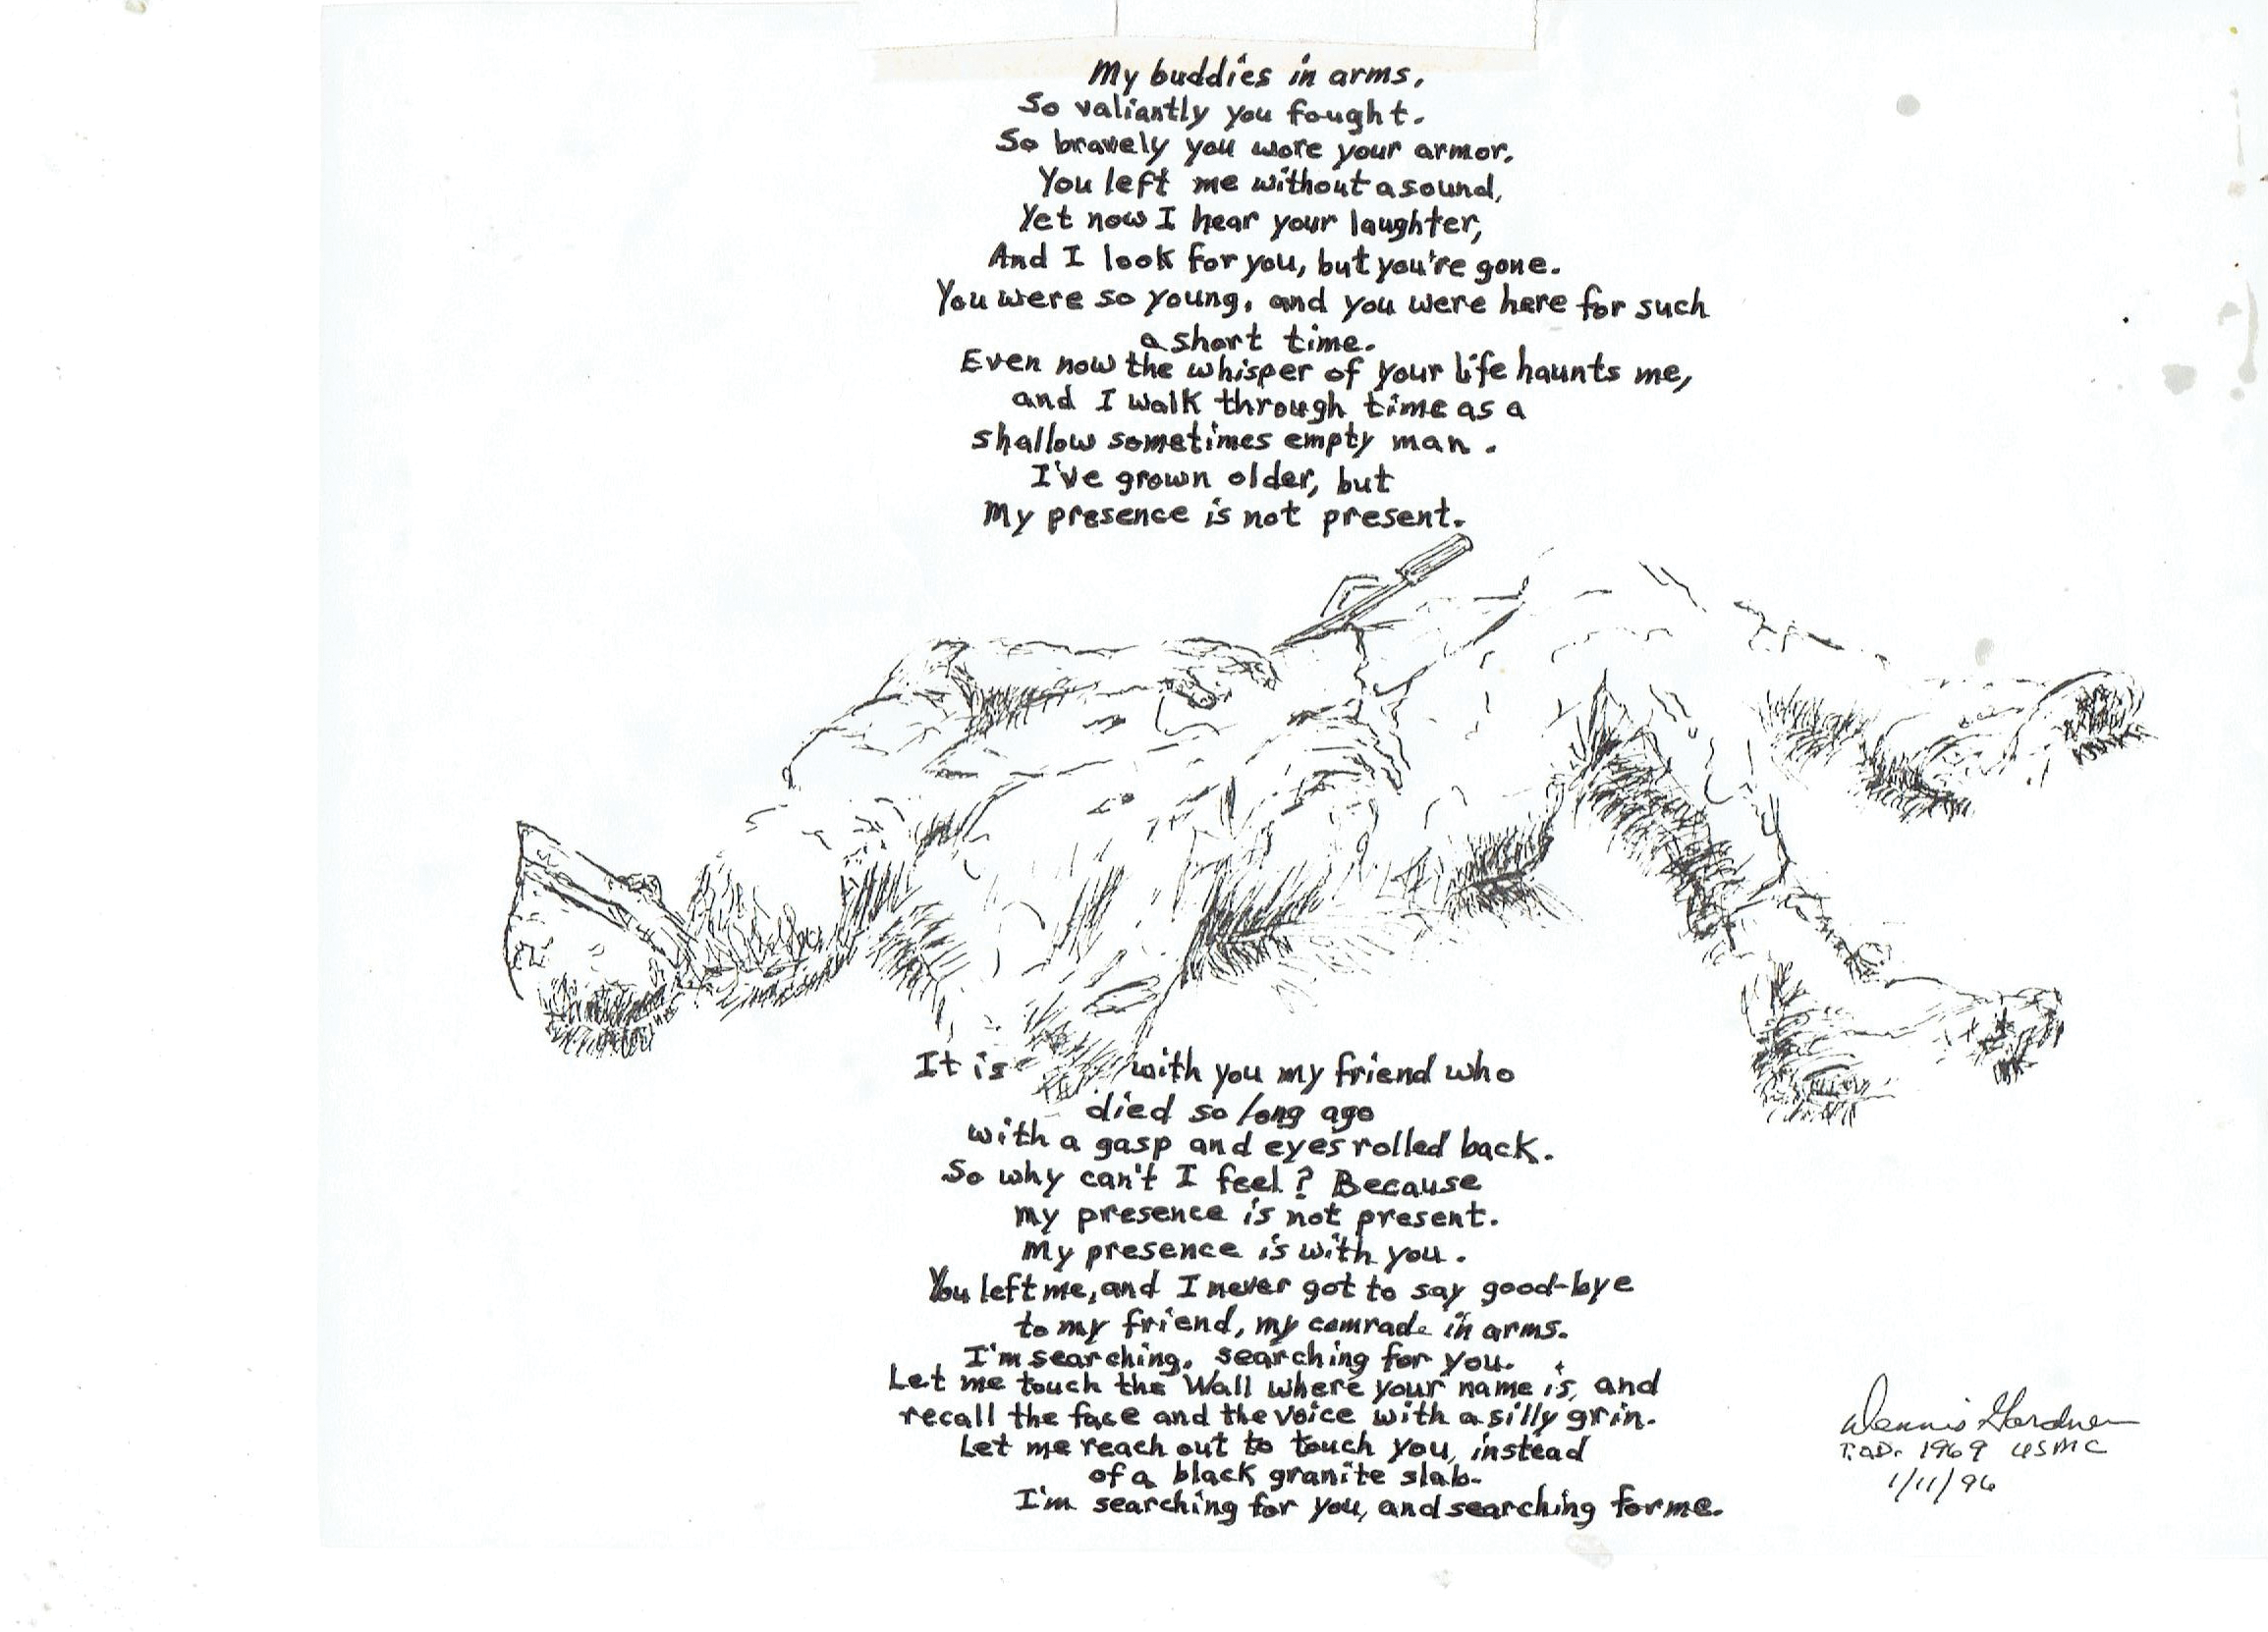 My buddies in arms,
So valiantly you fought.
So bravely you wore your armor.
You left me without a sound,
Yet now I hear your laughter,
And I look for you, but you're gone.
You were so young, and you were here for such
a short time.
Even now the whisper of your life haunts me,
and I walk through time as a
shallow sometimes empty man.
I've grown older, but
My presence is not present.
It is with you my friend who
died so long ago
with a gasp and eyes rolled back.
So why can't I feel? Because
my presence is not present.
My presence is with you.
You left me, and I never got to say good-bye
to my friend, my comrade in arms.
I'm searching, searching for you.
Let me touch the Wall where your name is, and
recall the face and the voice with a silly grin.
Let me reach out to touch you, instead
of a black granite slab.
I'm searching for you, and searching for me.
Dennis Gardner
T.O.D. 1969 USMC
1/11/96